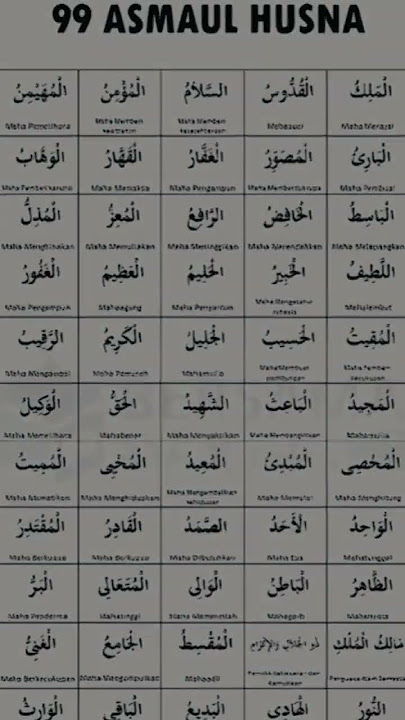 99 ASMAUL HUSNA
الْمَلِكُ الْقُدُّوسُ السَّلَامُ الْمُؤْمِنُ الْمُهَيْمِنُ
Maha Pemelihara Maha Memberi Maha Memberi Mahasuci Maha Merajai
الْبَارِئُ الْمُصَوِّرُ الْغَفَّارُ الْقَهَّارُ الْوَهَّابُ
Maha Pemberi Karunia Maha Memaksa Maha Pengampun Maha Membentuk rupa Maha Pembuat
الْبَاسِطُ الْخَافِضُ الرَّافِعُ الْمُعِزُّ الْمُذِلُّ
Maha Menghinakan Maha Memuliakan Maha Meninggikan Maha Merendahkan Maha Melapangkan
اللَّطِيفُ الْخَبِيرُ الْحَلِيمُ الْعَظِيمُ الْغَفُورُ
Maha Pengampun Mahaagung Maha Penyantun Maha Mengetahui rahasia Mahalembut
الْمُقِيتُ الْحَسِيبُ الْجَلِيلُ الْكَرِيمُ الرَّقِيبُ
Maha Mengawasi Maha Pemurah Mahamulia Maha Membuat perhitungan Maha Pemberi kecukupan
الْمَجِيدُ الْبَاعِثُ الشَّهِيدُ الْحَقُّ الْوَكِيلُ
Maha Memelihara Mahabenar Maha Menyaksikan Maha Membangkitkan Mahamulia
الْمُحْصِى الْمُبْدِئُ الْمُعِيدُ الْمُحْيِى الْمُمِيتُ
Maha Mematikan Maha Menghidupkan Maha Mengembalikan kehidupan Maha Memulai Maha Menghitung
الْوَاحِدُ الْأَحَدُ الصَّمَدُ الْقَادِرُ الْمُقْتَدِرُ
Maha Berkuasa Maha Berkuasa Maha Dibutuhkan Maha Esa Mahatunggal
الظَّاهِرُ الْبَاطِنُ الْوَالِى الْمُتَعَالِى الْبَرُّ
Maha Penderma Mahatinggi Maha Memerintah Mahagaib Mahanyata
مَالِكُ الْمُلْكِ ذُو الْجَلَالِ وَالْإِكْرَامِ الْمُقْسِطُ الْجَامِعُ الْغَنِىُّ
Maha Berkecukupan Maha Mengumpulkan Mahaadil Pemilik Kebesaran dan Kemuliaan Penguasa Alam Semesta
النُّورُ الْهَادِى الْبَدِيعُ الْبَاقِى الْوَارِثُ